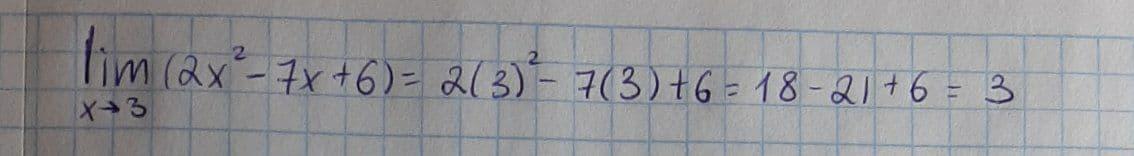 lim (2x² - 7x + 6) = 2(3)² - 7(3) + 6 = 18 - 21 + 6 = 3
x → 3